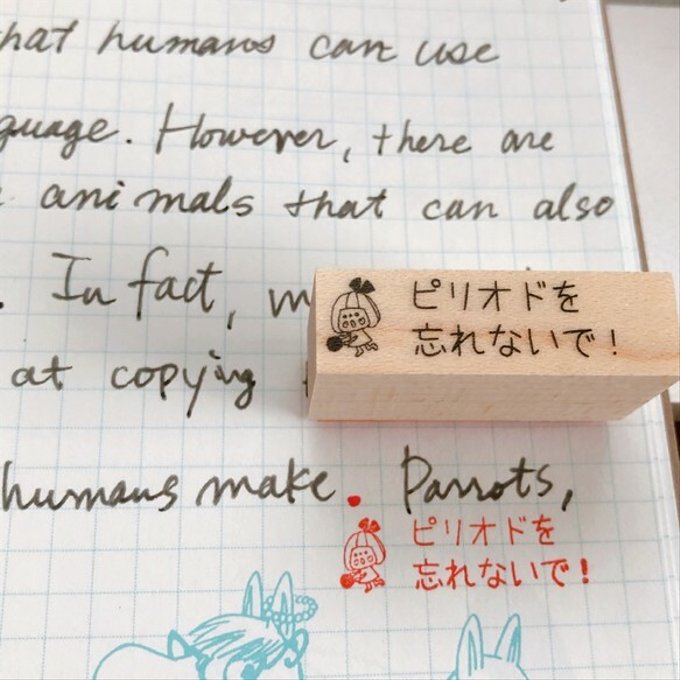 that humans can use
guage. However, there are
animals that can also
. In fact,
at copying
humans make. Parrots,
ピリオドを
忘れないで!
ピリオドを
忘れないで!